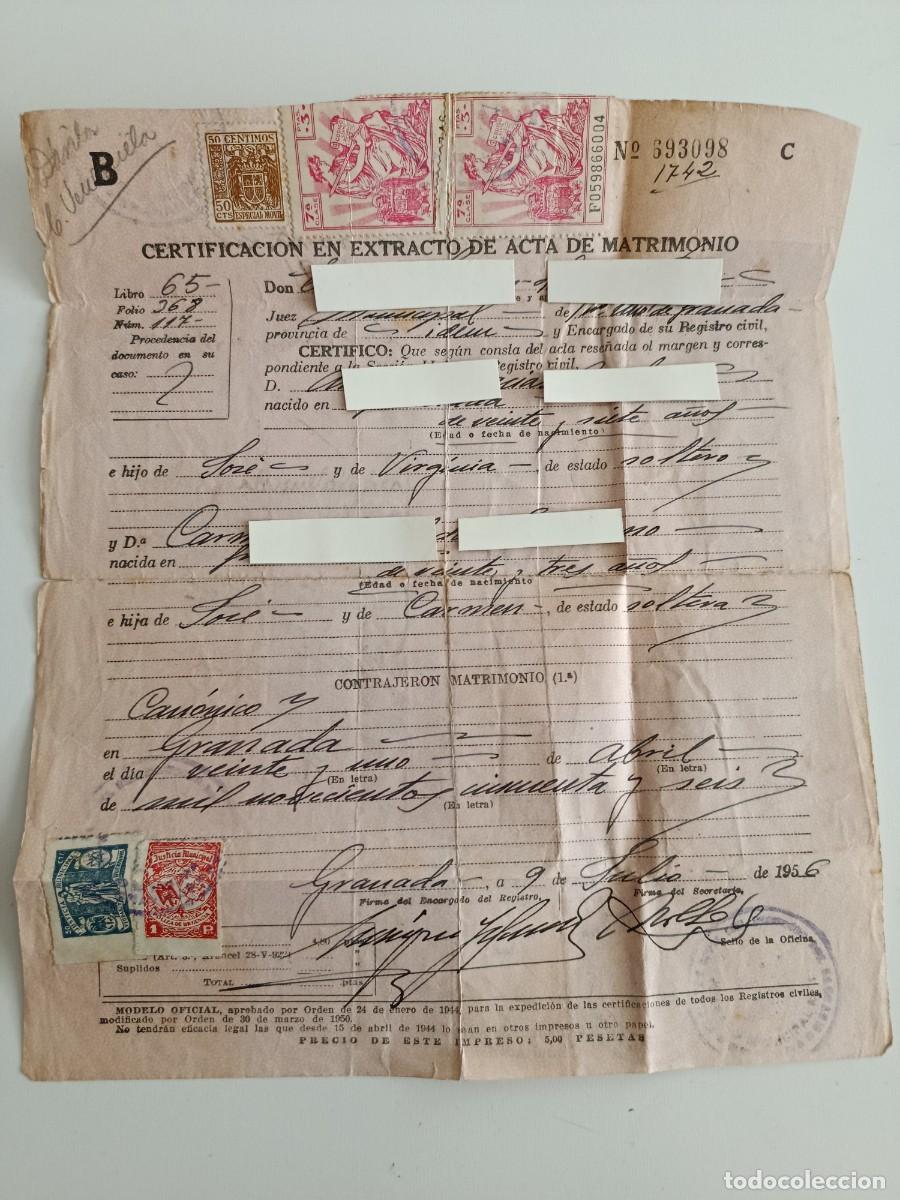 B
50 CENTIMOS
50
CTS ESPECIAL MOVIL
7ª CLASE
7ª CLASE
F059866004
Nº 693098 C
1742
CERTIFICACION EN EXTRACTO DE ACTA DE MATRIMONIO
Libro 65
Folio 368
Núm. 117
Procedencia del
documento en su
caso:
Don
Juez Municipal de Granada
provincia de idem y Encargado de su Registro civil,
CERTIFICO: Que según consta del acta reseñada al margen y corres-
pondiente a la Sección Registro civil,
D.
nacido en
de veinte y siete años
(Edad o fecha de nacimiento)
e hijo de José y de Virginia de estado soltero
y D.ª Carm
nacida en
de veinte y tres años
(Edad o fecha de nacimiento
e hija de José y de Carmen, de estado soltera
CONTRAJERON MATRIMONIO (1.ª)
Canónico
en Granada
el día veinte y uno de abril
(En letra) (En letra)
de mil novecientos cincuenta y seis
(En letra)
Granada a 9 de Julio de 1956
Firma del Encargado del Registro, Firma del Secretario,
Sello de la Oficina,
Justicia Municipal
1 P.
(Art. 3.º, Arancel 28-V-
Suplidos "
TOTAL ptas.
MODELO OFICIAL, aprobado por Orden de 24 de enero de 1944, para la expedición de las certificaciones de todos los Registros civiles,
modificado por Orden de 30 de marzo de 1950.
No tendrán eficacia legal las que desde 15 de abril de 1944 lo sean en otros impresos u otro papel.
PRECIO DE ESTE IMPRESO: 5,00 PESETAS
todocoleccion